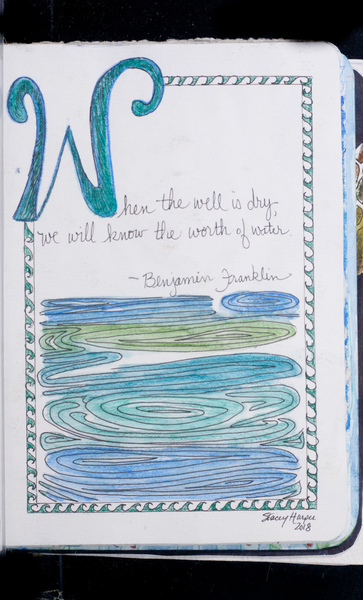 When the well is dry,
we will know the worth of water
— Benjamin Franklin
Stacey Harper
2018